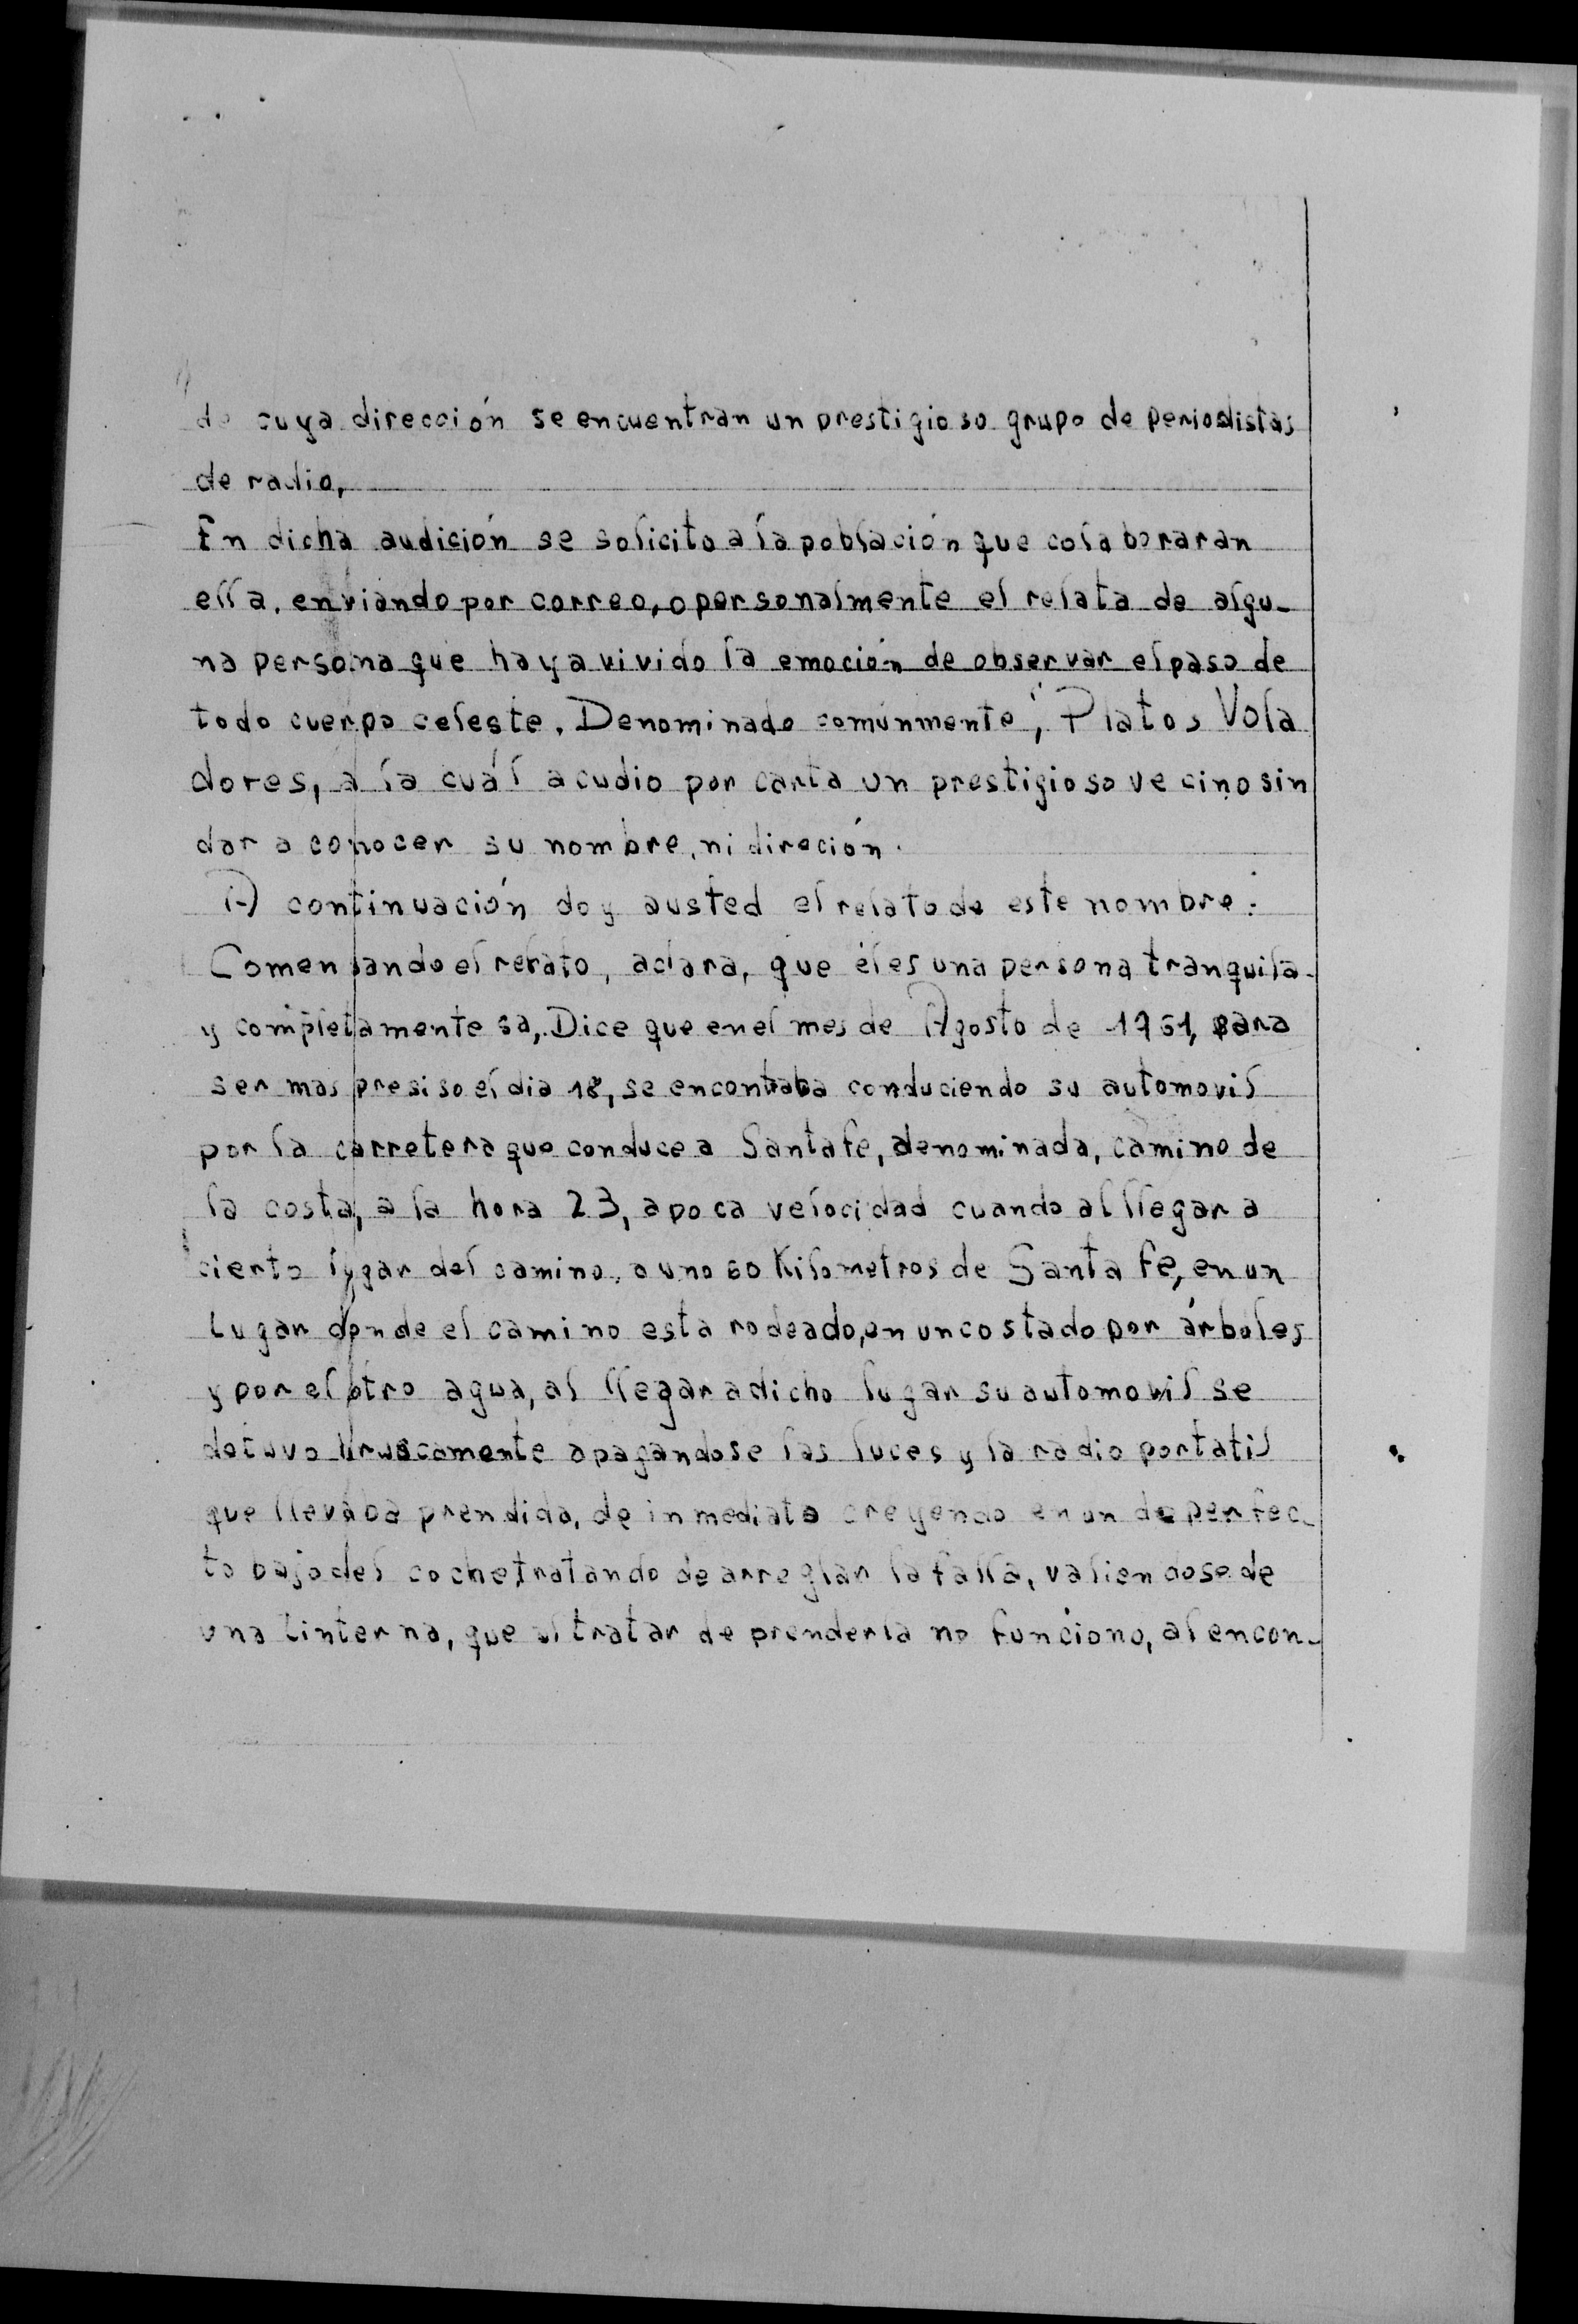 de cuya dirección se encuentran un prestigioso grupo de periodistas
de radio,
En dicha audición se solicito a la población que colaboraran
ella, enviando por correo, o personalmente el relata de algu-
na persona que haya vivido la emoción de observar el paso de
todo cuerpo celeste. Denominado comúnmente, Platos Vola
dores, a la cuál acudio por carta un prestigioso vecino sin
dar a conocer su nombre, ni direción.
A continuación doy a usted el relato de este nombre:
Comensando el relato, aclara, que él es una persona tranquila
y completamente sa, Dice que en el mes de Agosto de 1961, para
ser mas presiso el dia 18, se encontraba conduciendo su automovil
por la carretera que conduce a Santa fe, denominada, camino de
la costa, a la hora 23, a poca velocidad cuando al llegar a
cierto lugar del camino, a uno 60 Kilometros de Santa fe, en un
lugar donde el camino esta rodeado, en un costado por árboles
y por el otro agua, al llegar a dicho lugar su automovil se
detuvo bruscamente apagandose las luces y la radio portatil
que llevaba prendida, de inmediato creyendo en un deperfec-
to bajo del coche, tratando de arreglar la falla, valiendose de
una linterna, que al tratar de prenderla no funciono, al encon-